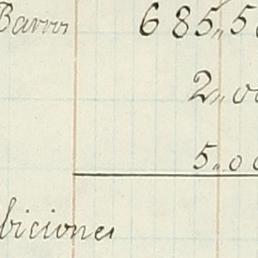 Barros 685,,5
2,,0
5,,00
biciones